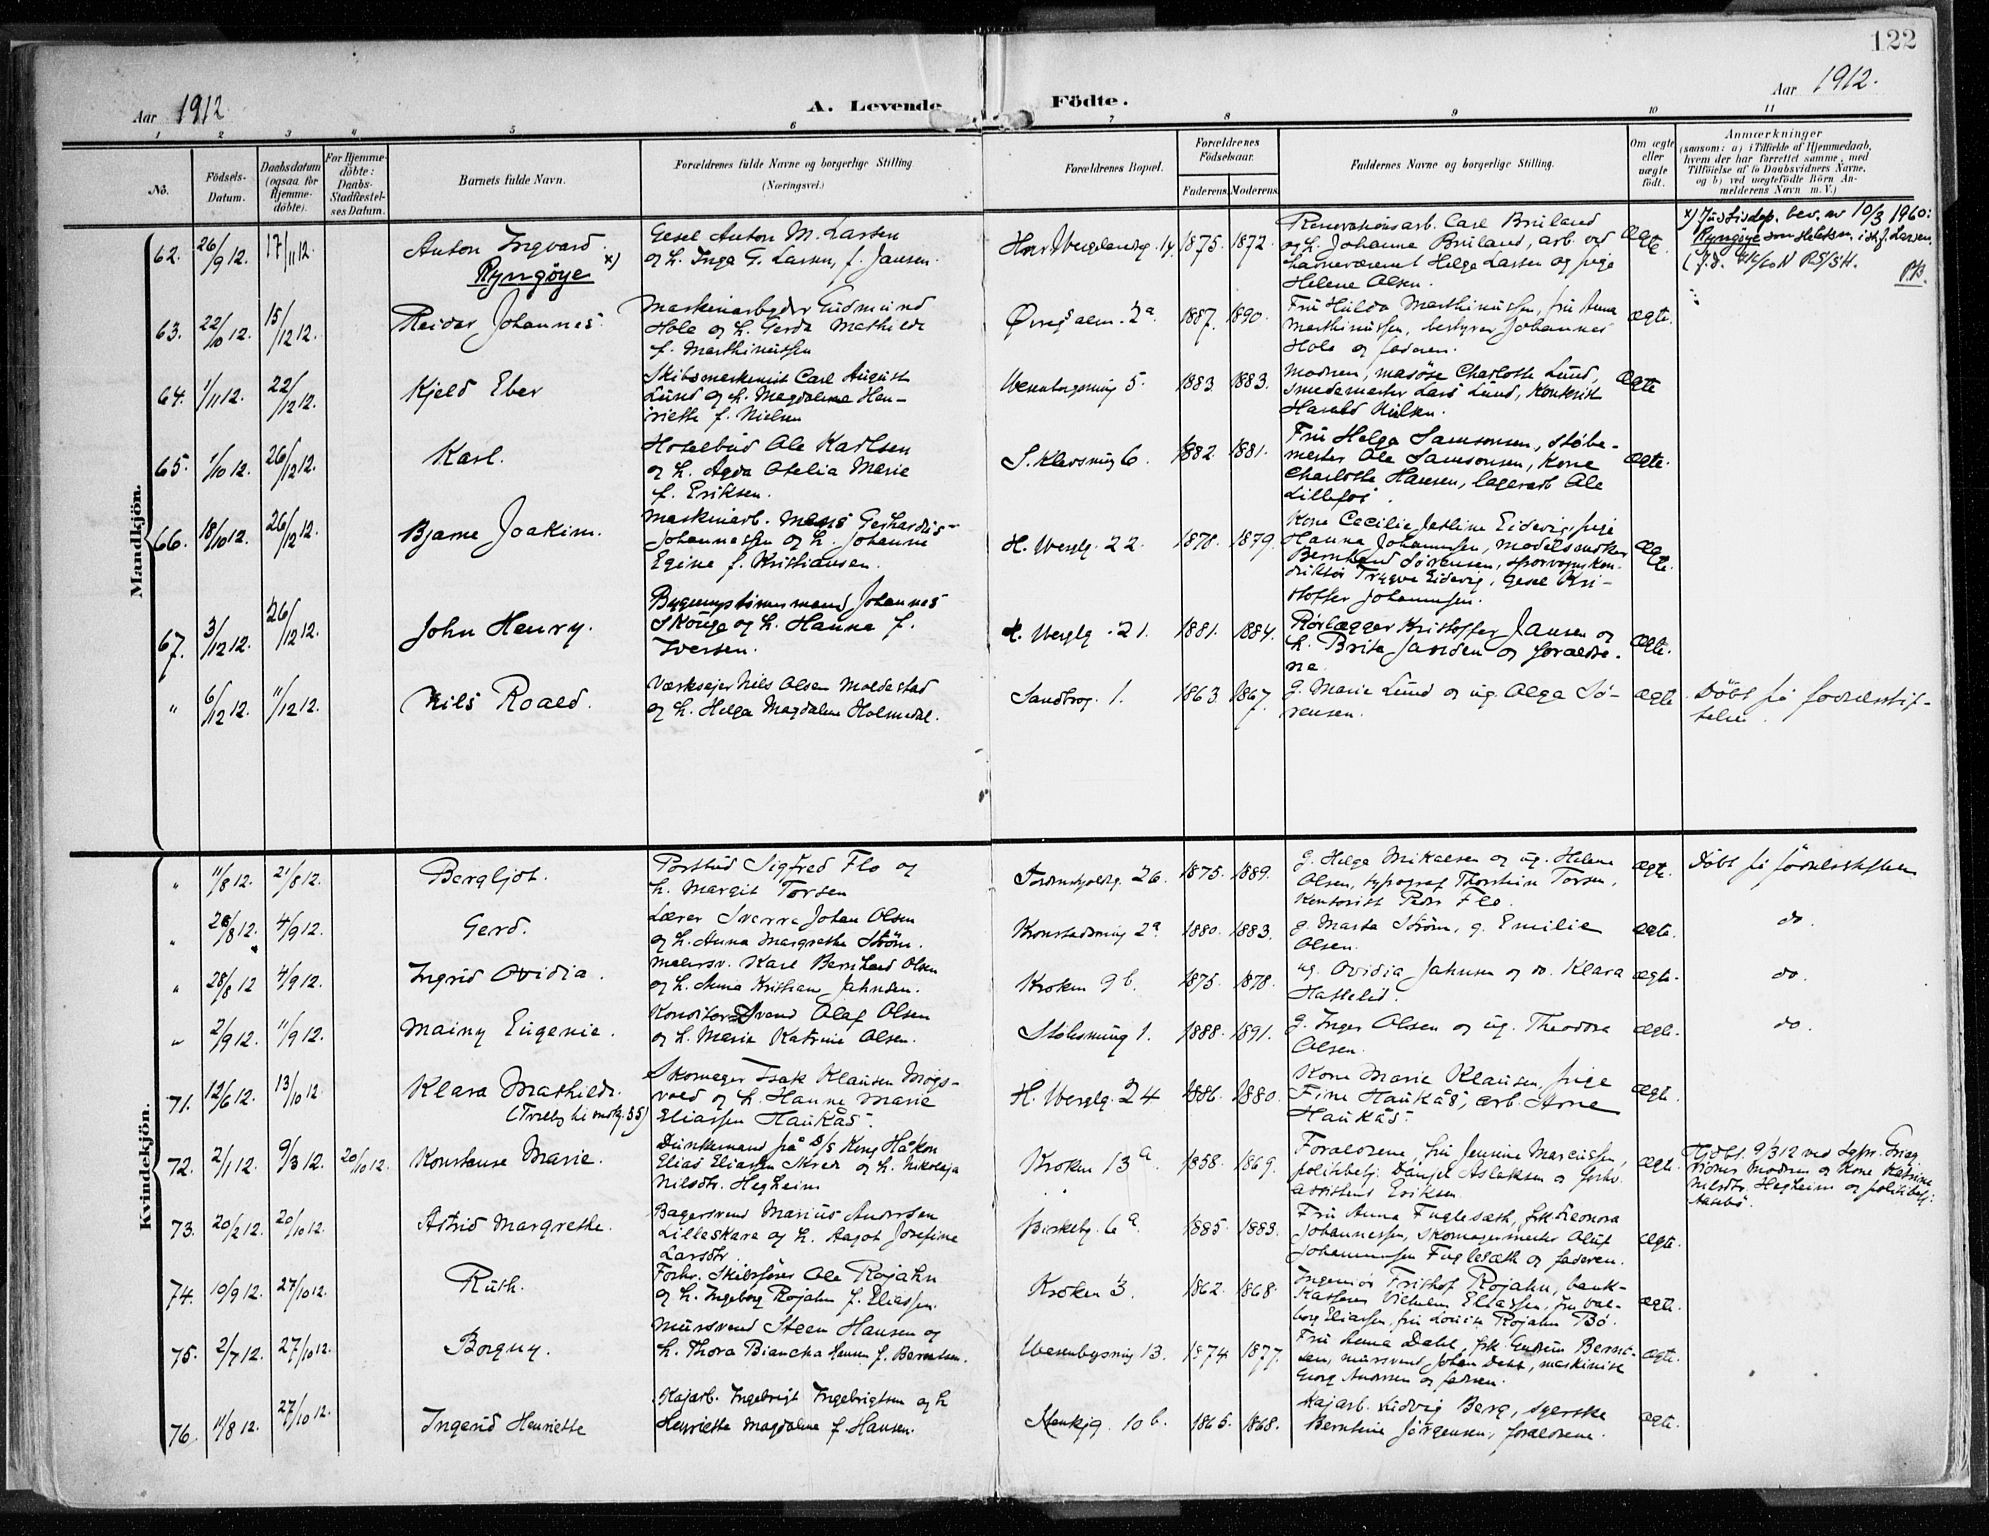 122
Aar 1912.
A. Levende Födte.
Aar 1912.
1 2 3 4 5 6 7 8 9 10 11
No.
Födsels-
Datum.
Daabsdatum
(ogsaa for
Hjemme-
döbte).
For Hjemme-
döbte:
Daabs-
Stadfæstel-
ses Datum.
Barnets fulde Navn.
Forældrenes fulde Navne og borgerlige Stilling
(Næringsvei.)
Forældrenes Bopæl.
Forældrenes
Födselsaar.
Faderens. Moderens.
Faddernes Navne og borgerlige Stilling.
Om ægte
eller
uægte
födt.
Anmærkninger
(saasom: a) i Tilfælde af Hjemmedaab,
hvem der har forrettet samme, med
Tilföielse af to Daabsvidners Navne,
og b) ved uægtefödte Börn An-
melderens Navn m. V.)
Mandkjön.
62. 26/9 12. 17/11 12. Anton Ingvard. x)
Ryngøye
Gesel Anton M. Larsen
og h. Inga G. Larsen, f. Jansen.
14. 1875. 1872.
Renovationsarb. Carl Bruland
og h. Johanna Bruland, arb. ved
Helga Larsen og pige
Helene Olsen.
ægte.
x) Justisdep. bev. av 10/3 1960:
Ryngøye som slektsn. i st. f. Larsen.
63. 22/10 12. 15/12 12. Reidar Johannes
Maskinarbeider Gudmund
Hole og h. Gerda Mathilde
f. Marthinussen
2a 1887. 1890.
Fru Hulda Marthinussen, fru Anna
Marthinussen, bestyrer Johannes
Hole og faderen.
ægte.
64. 1/11 12. 22/12 12. Kjeld Eber
Skibsmaskinist Carl August
Lund og h. Magdalena Hen-
riette f. Nielsen
5. 1883. 1883.
Modren, masöse Charlotte Lund,
smedemester Lars Lund, kontorist
Harald Nielsen.
ægte
65. 1/10 12. 26/12 12. Karl.
Hotelbud Ole Karlsen
og h. Agda Otelia Marie
f. Eriksen.
6. 1882. 1881.
Fru Helga Samsonsen, støbe-
mester Ole Samsonsen, Kone
Charlotte Hansen, lagerarb Ole
ægte.
66. 18/10 12. 26/12 12. Bjarne Joakim.
Maskinarb. Mons Gerhardus
Johannessen og h. Johanne
Egine f. Kristiansen.
H. Wergelg. 22. 1878. 1879.
Kone Cecilie Jesline Eidevig, pige
Hanna Johannessen, modelsnedker
Bernhard Sørensen, sporvognskon-
duktør Trygve Eidevig, Gesel Kri-
stoffer Johannessen.
ægte.
67. 3/12 12. 26/12 12. John Henry.
Bygningstømmermand Johannes
Skouge og h. Hanna f.
Iversen.
H. Wergelg. 21. 1881. 1884.
Rørlægger Kristoffer Jansen og
h. Brita Jansen og forældre-
ne.
ægte.
" 6/12 12. 11/12 12. Nils Roald.
Værkseier Nils Olsen Moldestad
og h. Helga Magdalene Holmedal.
Sandbrog. 1. 1863. 1867.
g. Marie Lund og ug. Olga Sø-
rensen.
ægte
Døbt på fødselsstif-
telsen.
Kvindekjön.
" 11/8 12. 21/8 12. Bergljot.
Postbud Sigfred Flo og
h. Margit Torsen
26. 1875. 1889.
g. Helga Mikalsen og ug. Helene
Olsen, typograf Thorstein Torsen,
Kontorist Peder Flo.
ægte.
Døbt på fødselsstiftelsen
" 26/8 12. 4/9 12. Gerd.
Lærer Sverre Johan Olsen
og h. Anna Margrethe Strøm.
2a 1880. 1883.
g. Marta Strøm, g. Emilie
Olsen.
ægte.
do.
" 28/8 12 4/9 12. Ingrid Ovidia.
Malersv. Karl Bernhard Olsen
og h. Anna Kristiane Jahnsen.
Kroken 9b. 1875. 1878.
ug. Ovidia Jahnsen og do. Klara
Hatlelid.
ægte.
do.
" 2/9 12. 11/9 12. Mainy Eugenie.
Konditor Svend Olaf Olsen
og h. Marie Katrine Olsen.
Stølesmug 1. 1888. 1891.
g. Inger Olsen og ug. Theodora
Olsen.
ægte.
do.
71. 12/6 12. 13/10 12. Klara Mathilde.
Skomager Isak Klausen Mogs-
vold og h. Hanne Marie
Eliassen Haukås.
H. Wergelg. 24 1886. 1880.
Kone Marie Klausen, pige
Fine Haukås, arb. Arne
Haukås.
ægte.
72. 2/1 12. 9/3 12. 20/10 12. Konstanse Marie.
Dunkemand på D/S Kong Håkon
Elias Eliassen Skree og h. Nikolaja
Nilsdtr. Hegheim
Kroken 13a 1858. 1869.
Forældrene, fru Jennine Marcussen,
politibetj. Daniel Aslaksen og forhv.
assistent Eriksen.
ægte.
Hjdøbt 9/3 12 ved
modren og Kone Katrine
Nilsdtr. Hegheim og politibetj.
73. 20/2 12. 20/10 12. Astrid Margrethe.
Bagersvend Marius Andersen
Lilleskare og h. Aagot Josefine
Larsdtr.
6a 1885. 1883.
Fru Anna Fuglesæth, frk Eleonora
Johannessen, Skomagermester Oluf
Johannessen Fuglesæth og faderen.
ægte.
74. 10/9 12. 27/10 12. Ruth.
Forhv. Skibsfører Ole Rojahn
og h. Ingeborg Rojahn f. Eliassen.
Kroken 3. 1862. 1868.
Ingeniør Frithof Rojahn, bank-
kasserer Vilhelm Eliassen, fru Val-
borg Eliassen, fru Louise Rojahn Bö.
ægte.
75. 2/7 12. 27/10 12. Borguy.
Mursvend Steen Hansen og
h. Thora Biancha Hansen f. Berentsen.
13. 1874 1877.
Fru Anna Dahl, frk. Gudrun Bernt-
sen, mursvend Johan Dahl, maskinist
Georg Andersen og faderen.
ægte.
76. 11/8 12. 27/10 12. Ingerid Henriette
Kajarb. Ingebrigt Ingebrigtsen og h
Henriette Magdalene f. Hansen.
10 b. 1865. 1868.
Kajarb. Ludvig Berg, syerske
Berntine Jørgensen, forældrene.
ægte.